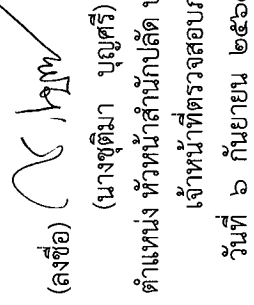 (ลงชื่อ)
(นางชุติมา บุญศรี)
ตำแหน่ง หัวหน้าสำนักปลัด
เจ้าหน้าที่ตรวจสอบ
วันที่ ๖ กันยายน ๒๕๖